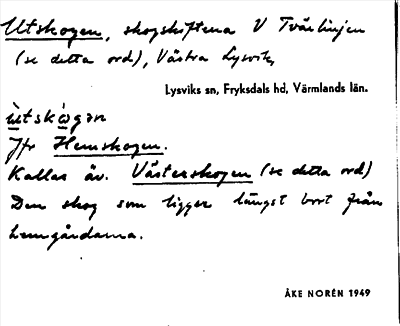 Utskogen, skogskiftena V Tvärlinjen
(se detta ord), Västra Lysvik,
Lysviks sn, Fryksdals hd, Värmlands län.
ùtskò̀gən
Jfr Hemskogen.
Kallas äv. Västerskogen (se detta ord)
Den skog som ligger längst bort från
hemgårdarna.
ÅKE NORÉN 1949